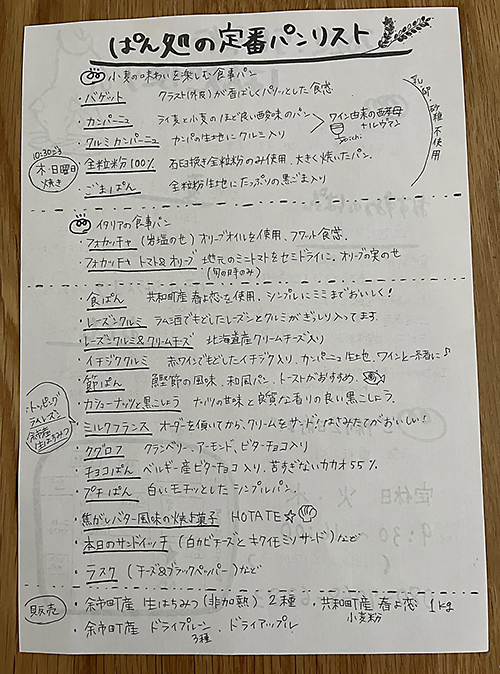 ぱん処の定番パンリスト
小麦の味わいを楽しむ食事パン
・バゲット クラスト(外皮)が香ばしくパリッとした食感
・カンパーニュ ライ麦と小麦のほど良い酸味のパン
・クルミカンパーニュ カンパの生地にクルミ入り
ワイン由来の酵母
乳・卵・砂糖不使用
10:30ごろ
木・日曜日
焼き
・全粒粉100% 石臼挽き全粒粉のみ使用、大きく焼いたパン。
・ごまぱん 全粒粉生地にたっぷりの黒ごま入り
イタリアの食事パン
・フォカッチャ (岩塩のせ) オリーブオイルを使用、フワッと食感。
・フォカッチャ トマト&オリーブ 地元のミニトマトをセミドライに。オリーブの実のせ
(旬の時のみ)
・食ぱん 共和町産 春よ恋を使用、シンプルにミミまでおいしく!
・レーズンクルミ ラム酒でもどしたレーズンとクルミがぎっしり入ってます。
・レーズンクルミ&クリームチーズ 北海道産クリームチーズ入り
・イチジククルミ 赤ワインでもどしたイチジク入り、カンパーニュ生地、ワインと一緒に♪
・節ぱん 鰹節の風味、和風パン、トーストがおすすめ、
・カシューナッツと黒こしょう ナッツの甘味と良質な香りの良い黒こしょう。
・トッピング
ラムレーズン
余市産
生はちみつ
・ミルクフランス オーダーを頂いてから、クリームをサンド!はさみたてがおいしい!
・クグロフ クランベリー、アーモンド、ビターチョコ入り
・チョコぱん ベルギー産ビターチョコ入り、苦すぎないカカオ55%
・プチぱん 白いモチッとしたシンプルパン。
・焦がしバター風味の焼き菓子 HOTATE☆
・本日のサンドイッチ (白カビチーズとキクイモミソサンド)など
・ラスク (チーズ&ブラックペッパー)など
販売
・余市町産 生はちみつ(非加熱) 2種 ・共和町産 春よ恋 1kg
小麦粉
・余市町産 ドライプルーン、ドライアップル
3種